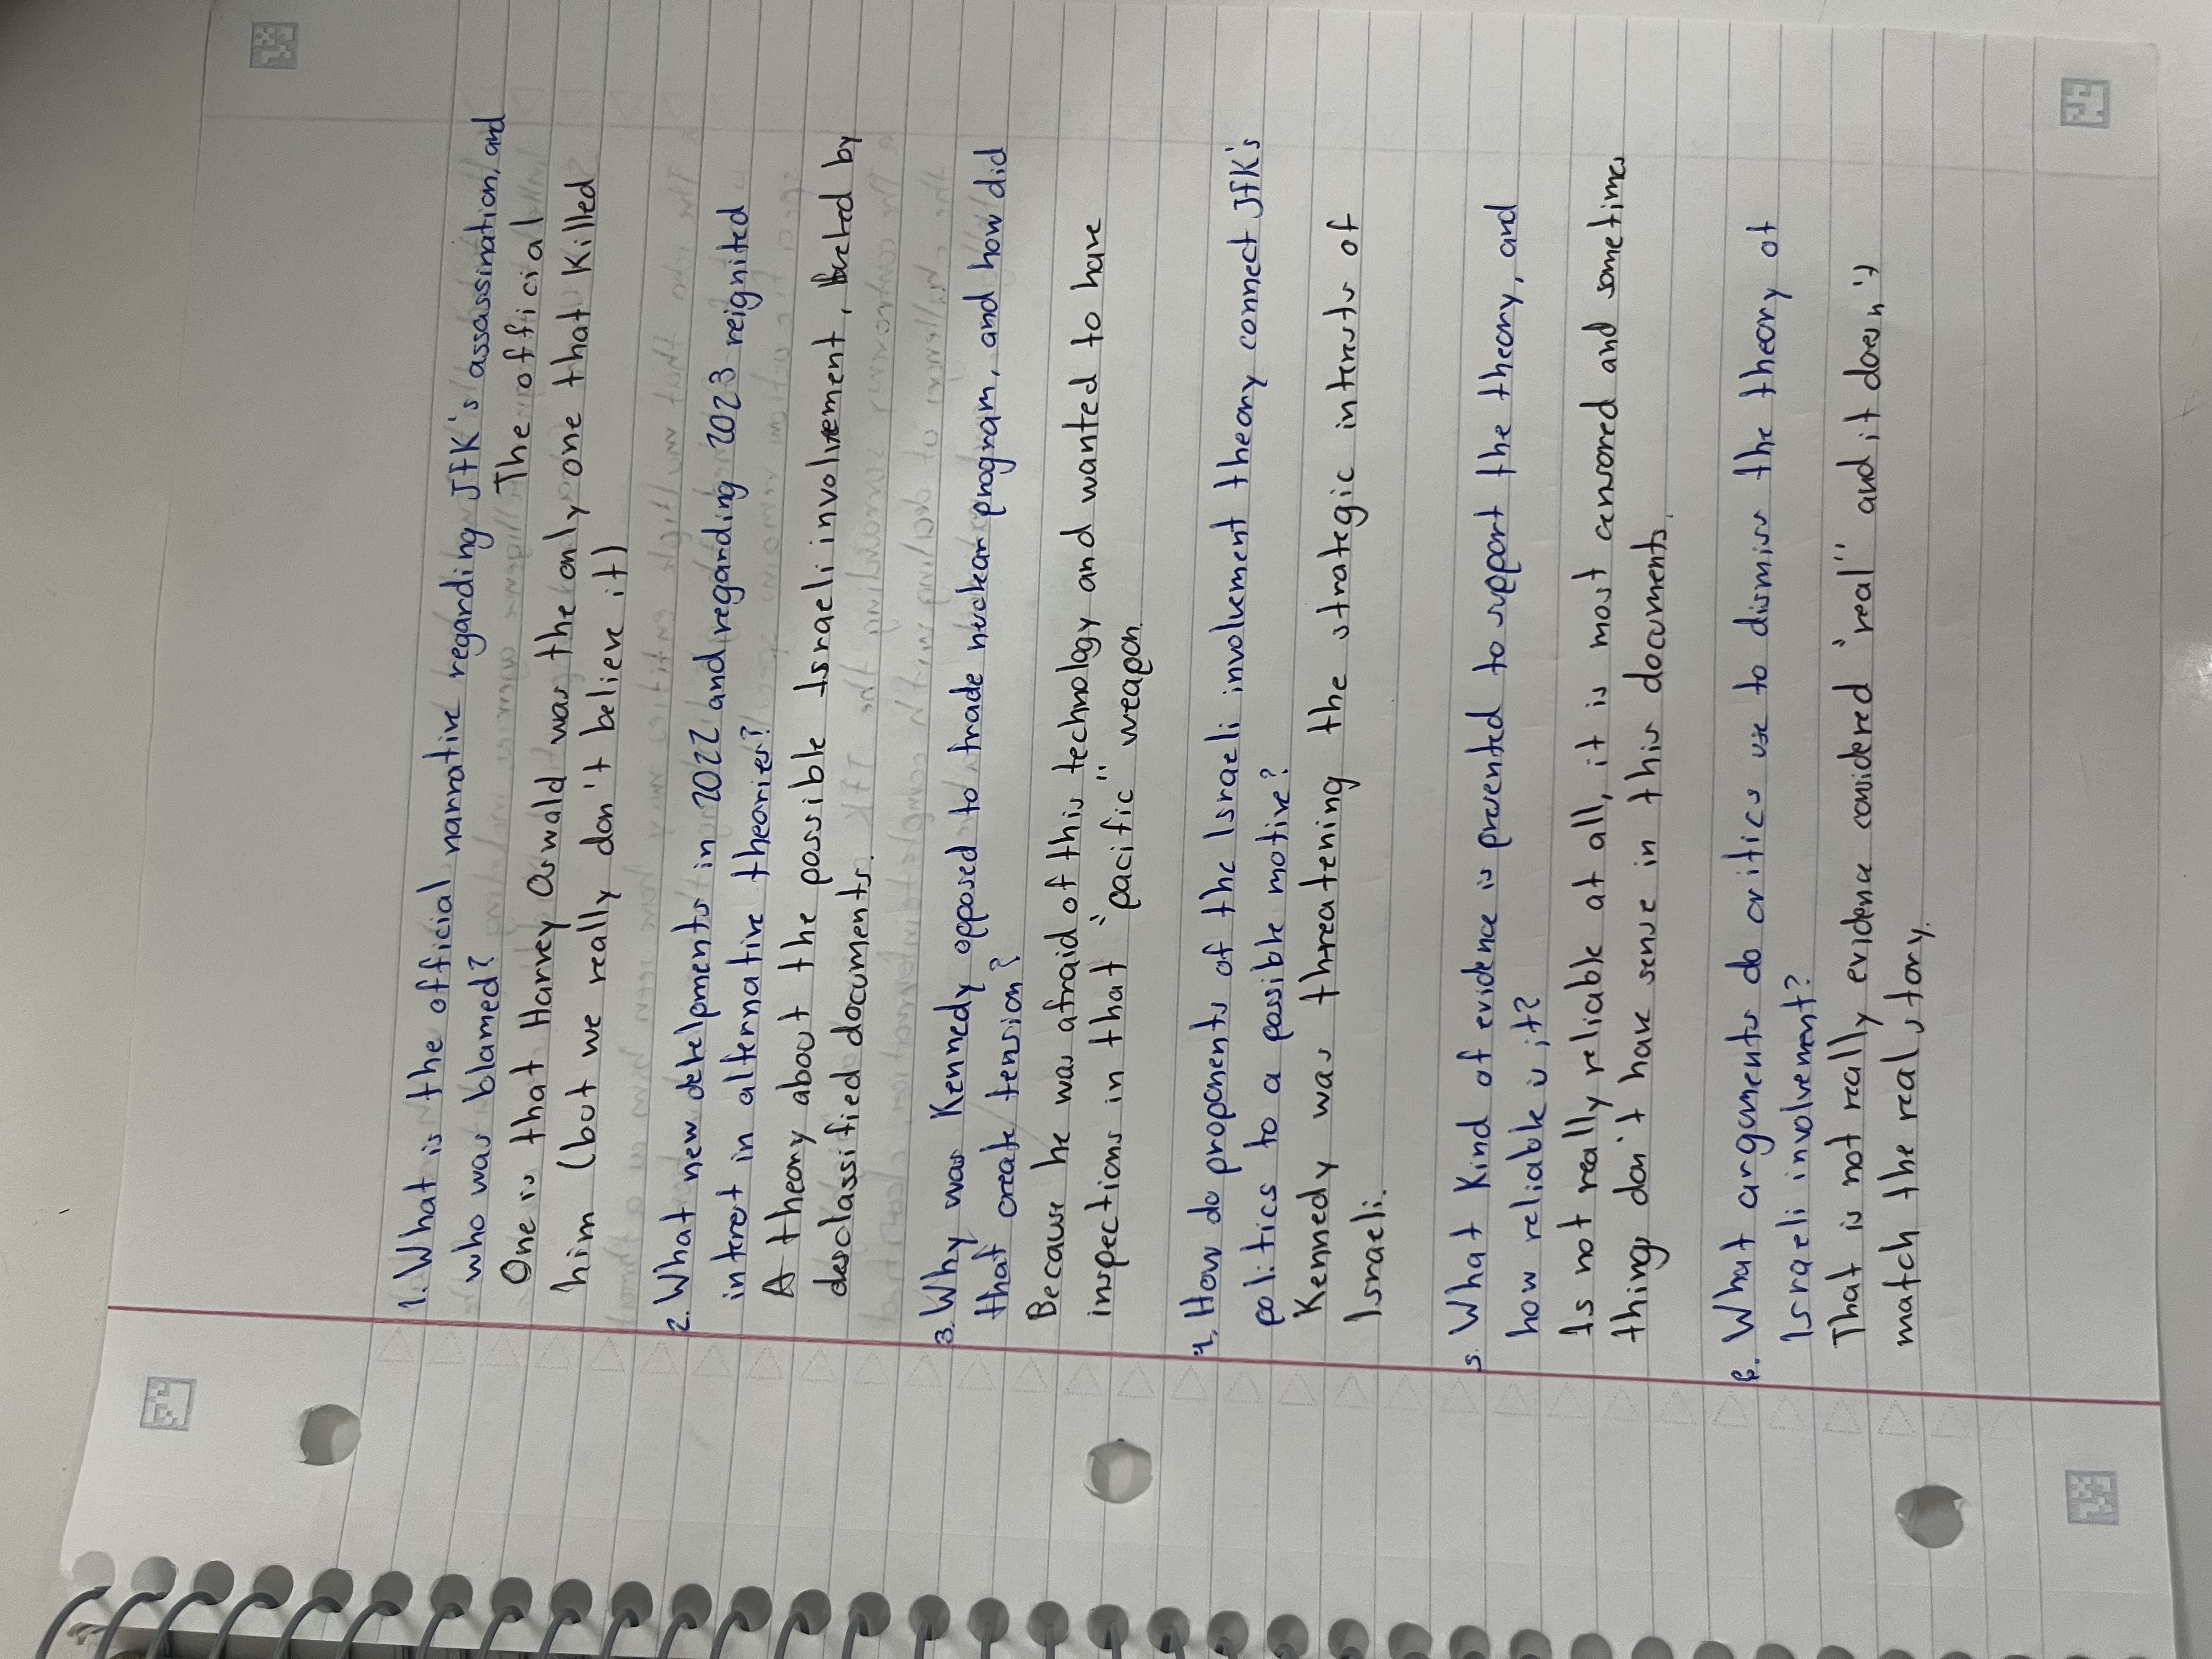 1. What is the official narrative regarding JFK's assassination, and
who was blamed? The official
One is that Harvey Oswald was the only one that killed
him (but we really don't believe it)
2. What new developments in 2022 and regarding 2023 reignited
interest in alternative theories?
A theory about the possible Israeli involvement, by
desclassified documents.
3. Why was Kennedy opposed to trade nuclear program, and how did
that create tension?
Because he was afraid of this technology and wanted to have
inspections in that "pacific" weapon
4. How do proponents of the Israeli involvement theory connect JFK's
politics to a possible motive?
Kennedy was threatening the strategic interests of
Israeli.
5. What kind of evidence is presented to support the theory, and
how reliable is it?
Is not really reliable at all, it is most censored and sometimes
things don't have sense in this documents.
6. What arguments do critics use to dismiss the theory of
Israeli involvement?
That is not really evidence considered "real" and it doesn't
match the real story.